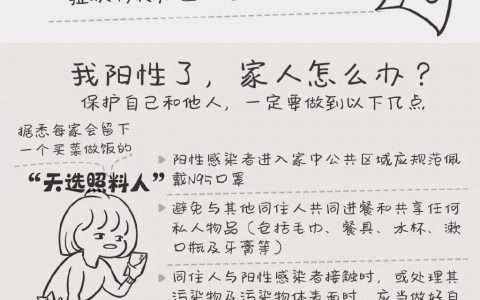 我阳性了，家人怎么办？
保护自己和他人，一定要做到以下几点
据悉每家会留下
一个买菜做饭的
“天选照料人”
阳性感染者进入家中公共区域应规范佩
戴N95口罩
避免与其他同住人共同进餐和共享任何
私人物品（包括毛巾、餐具、水杯、漱
口瓶及牙膏等）
同住人与阳性感染者接触时，或处理其
污染物及污染物体表面时，应当做好自